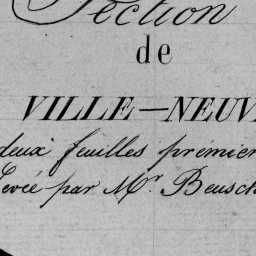 Section
de
VILLE—NEUV
deux feuilles premier
Levée par Mr. Beusch